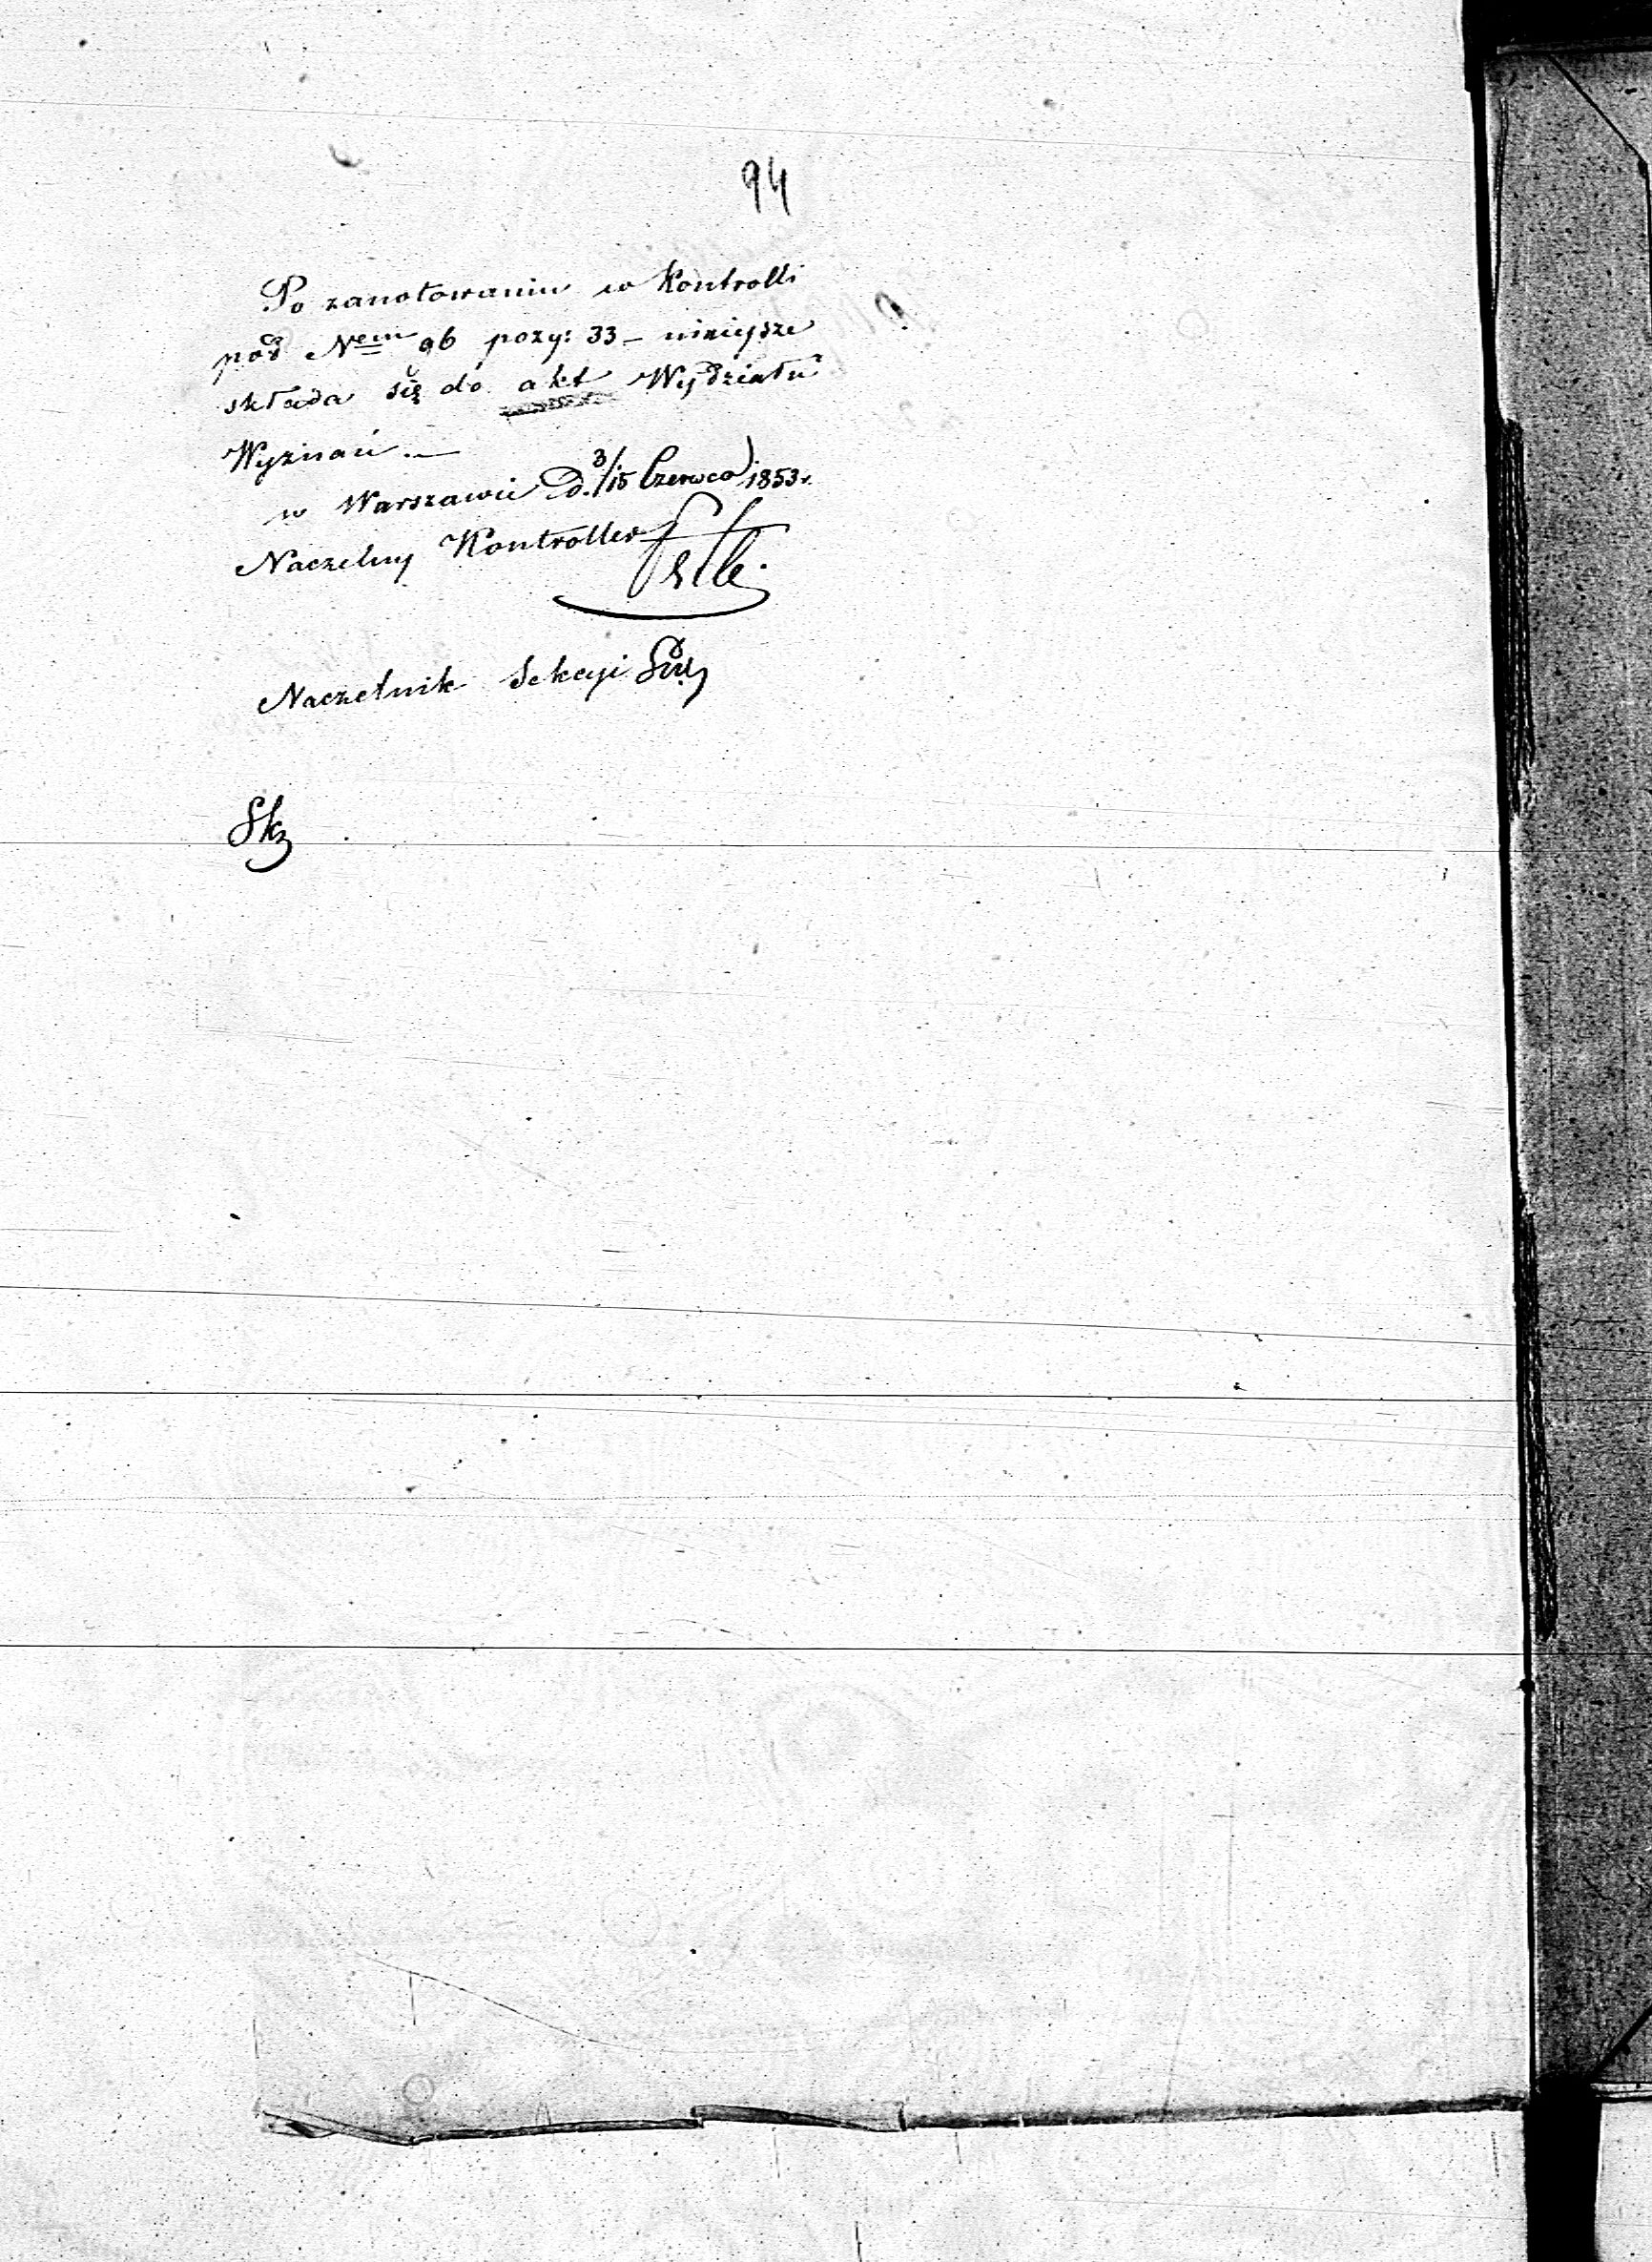 94
Po zanotowaniu w Kontrolli
pod Nem 96 pozy: 33 – niniejsze
składa się do akt Wydziału
Wyznań. —
w Warszawie D. 3/15 Czerwca 1853 r.
Naczelny Kontroller
Naczelnik Sekcyi